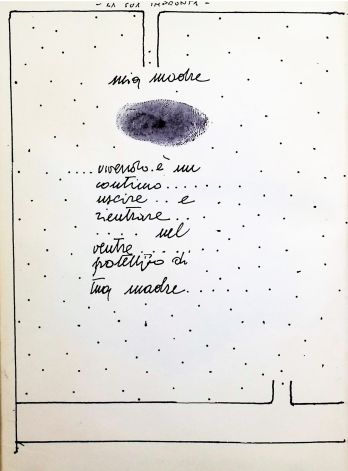 - LA SUA IMPRONTA -
mia madre
....vivendo. è un
continuo........
uscire.. e ....
rientrare...
..... nel
ventre.....
protettivo di
tua madre....